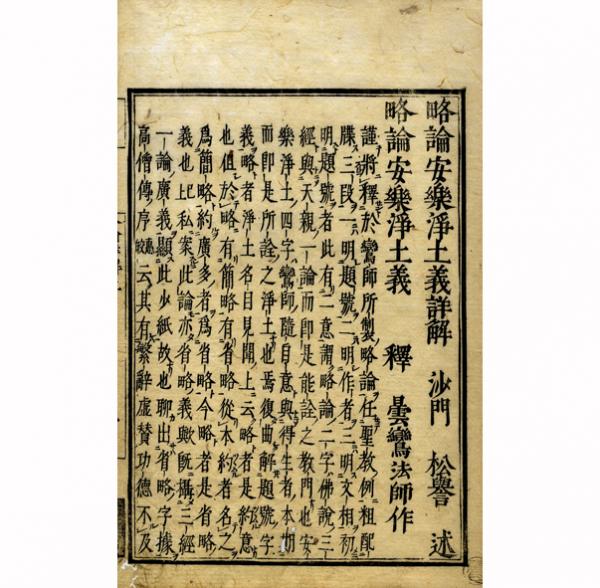 略論安樂淨土義詳解 沙門 松譽 述
略論安樂淨土義 釋 曇鸞法師作
謹將釋於鸞師所製略論任聖教例粗配
牒三段一明題號二明作者三明文相初
明題號者此有二意謂略論二字佛說三
經與天親一論而即是能詮之教門也安
樂淨土四字鸞師隨自意與得生者本期
而即是所詮之淨土也焉復曲解題號字
義略者淨土名目見聞上云略者是約意
也但於略有簡略有省略從本約者名之
爲簡略約廣多者爲省略今略者是省略
義也比私案此論亦省略義歟既攝三經
一論廣義顯此少紙故也聊出省略字據
高僧傳序慧皎云其有繁辭虛賛功德不及